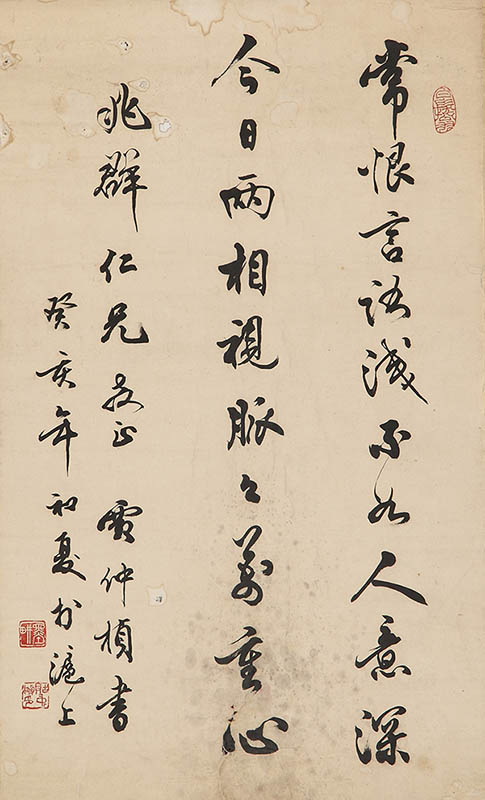 常恨言语浅不如人意深
今日两相視脉々万重心
兆群仁兄教正 賈仲楨書
癸亥年初夏於滬上